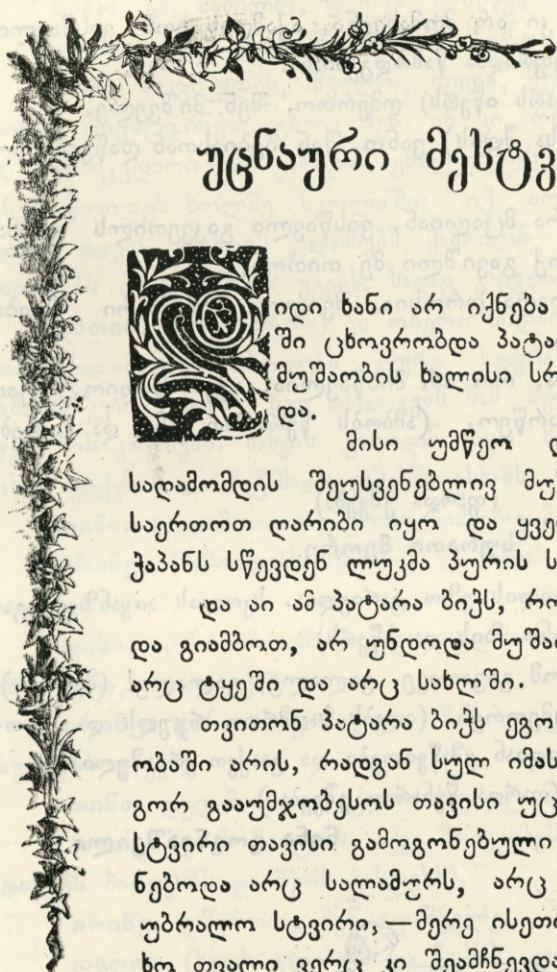 უცნაური მესტვ
იდი ხანი არ იქნება
ში ცხოვრობდა პატა
მუშაობის ხალისი სრ
და.
მისი უმწეო დ
საღამომდის შეუსვენებლივ მუ
საერთოთ ღარიბი იყო და ყვე
ჭაპანს სწევდენ ლუკმა პურის ს
და აი ამ პატარა ბიჭს, რო
და გიამბოთ, არ უნდოდა მუშა
არც ტყეში და არც სახლში.
თვითონ პატარა ბიჭს ეგო
ობაში არის, რადგან სულ იმას
გორ გააუმჯობესოს თავისი უც
სტვირი თავისი გამოგონებული
ნებოდა არც სალამურს, არც
უბრალო სტვირი,—მერე ისეთი
ხო თვალი ვერც კი შეამჩნევდა